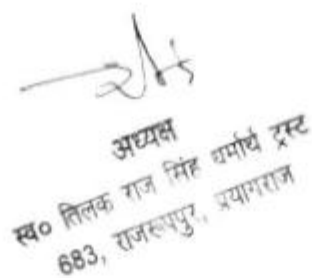 अध्यक्ष
स्व० तिलक राज सिंह धर्मार्थ ट्रस्ट
683, राजरूपपुर, प्रयागराज